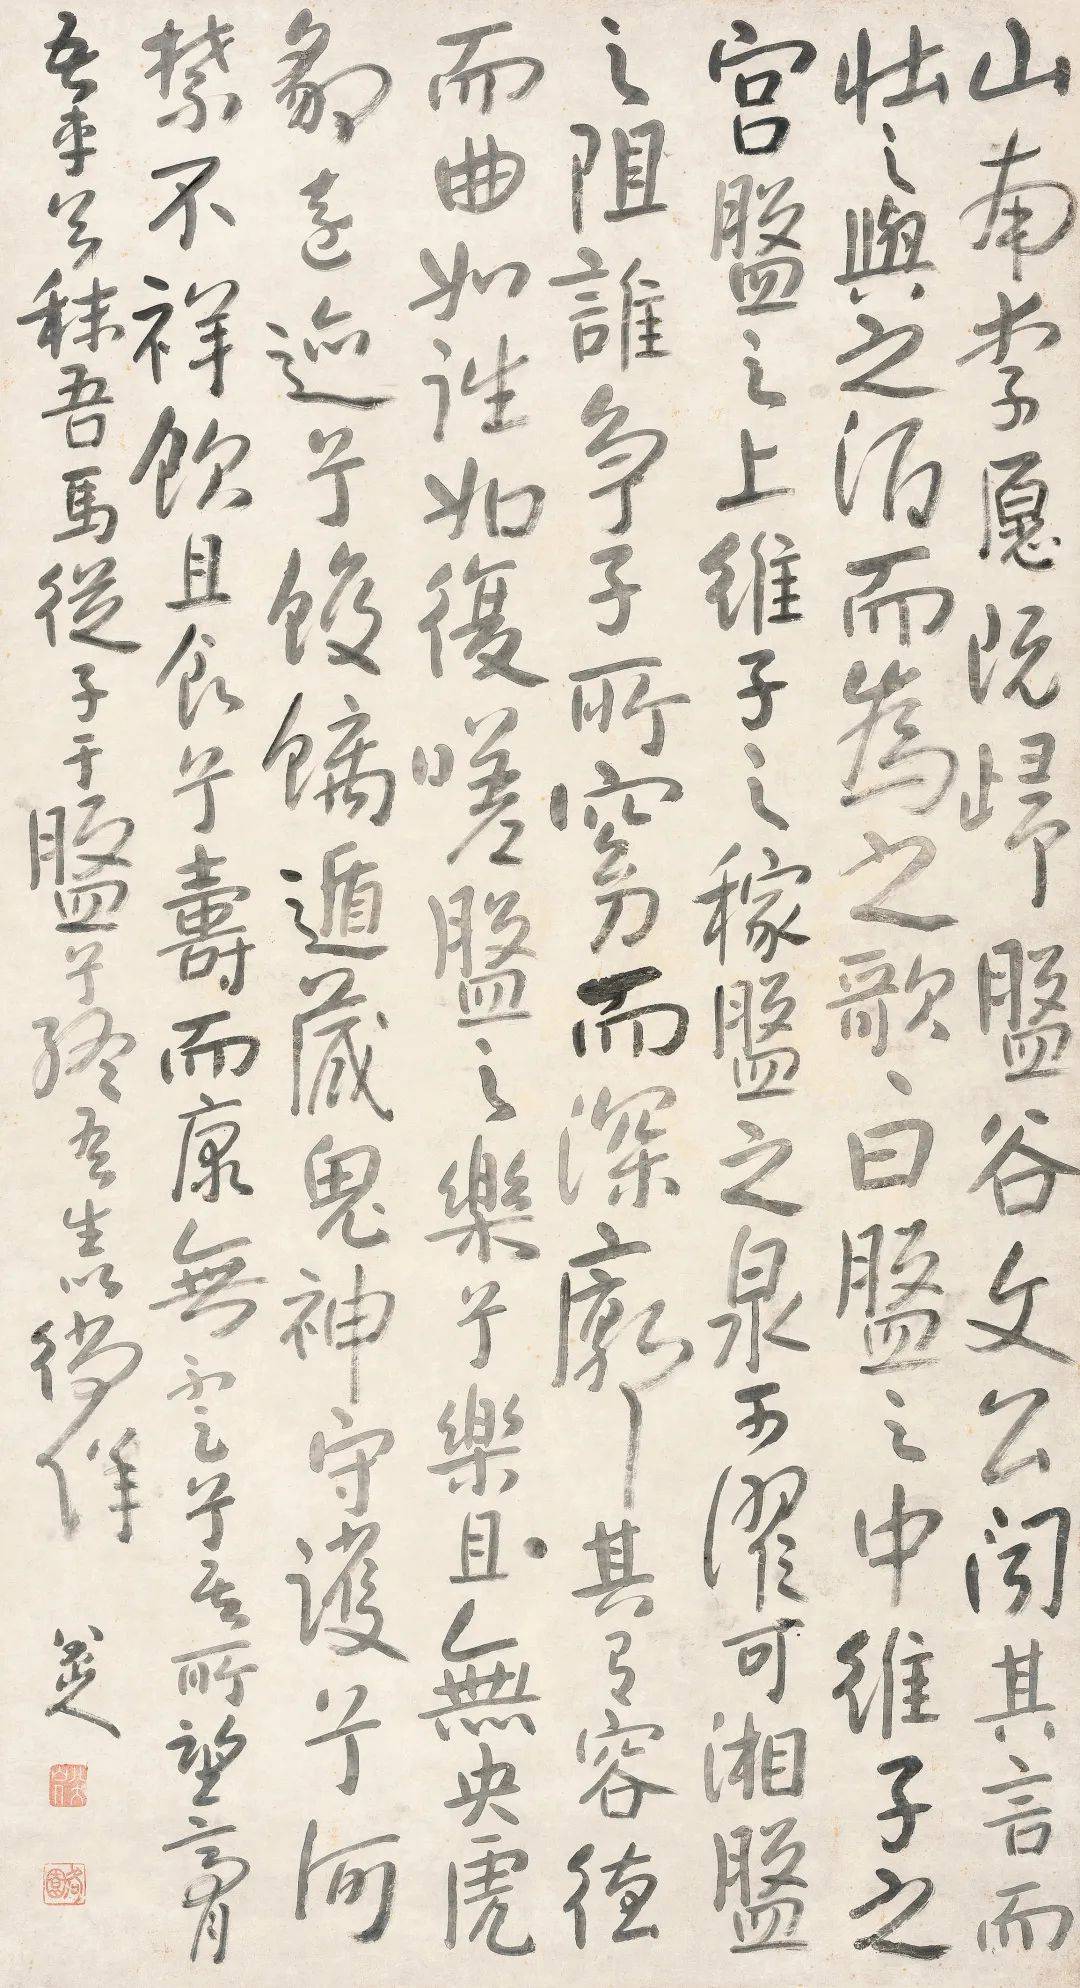 山南李愿既歸盤谷文公聞其言而
壯之與之酒而為之歌曰盤之中維子之
宮盤之上維子之稼盤之泉可濯可湘盤
之阻誰爭子所窈而深廓其有容
而曲如往如復嗟盤之樂兮樂且無央虎
豹遠迹兮蛟螭遁藏鬼神守護兮呵
禁不祥飲且食兮壽而康無不足兮奚所望膏
吾車兮秣吾馬從子于盤兮終吾生以徜徉
八大山人